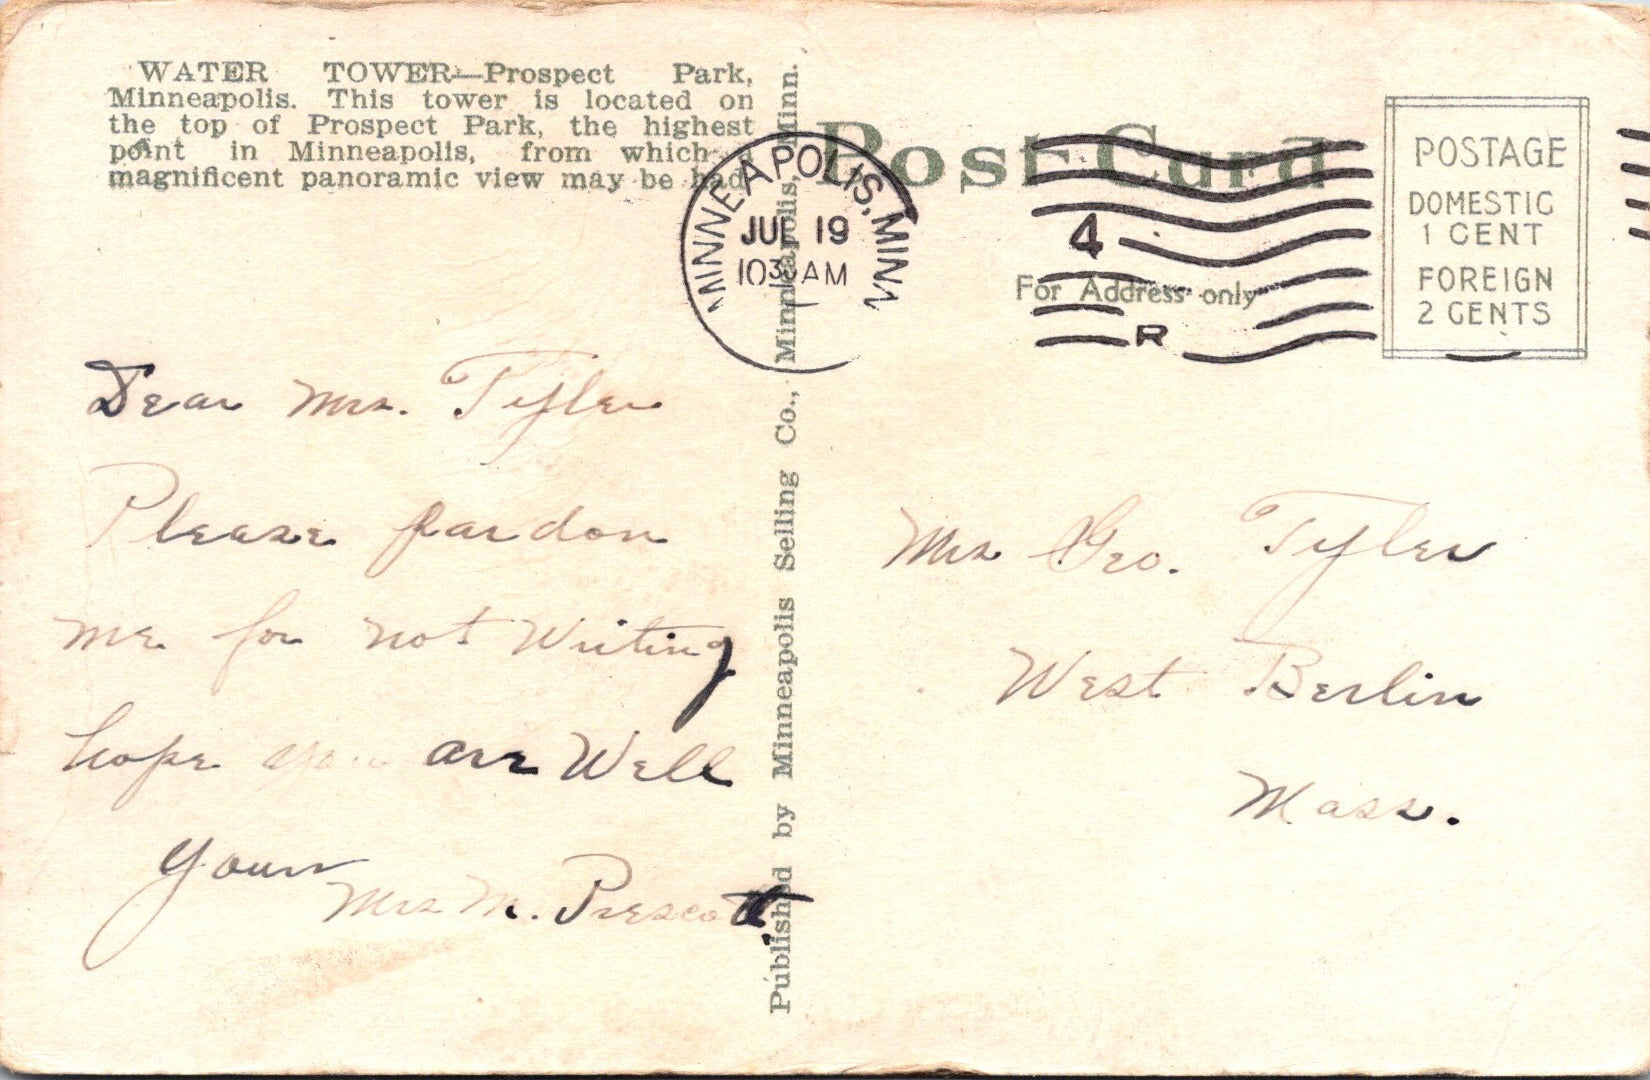 WATER TOWER—Prospect Park,
Minneapolis. This tower is located on
the top of Prospect Park, the highest
point in Minneapolis, from which a
magnificent panoramic view may be had.
Post Card
MINNEAPOLIS, MINN
JUL 19
10 30 AM
4
R
For Address only
POSTAGE
DOMESTIC
1 CENT
FOREIGN
2 CENTS
Published by Minneapolis Selling Co., Minneapolis, Minn.
Dear Mrs. Tyler
Please pardon
me for not Writing
hope you are Well
Yours
Mrs M. Prescott.
Mrs Geo. Tyler
West Berlin
Mass.